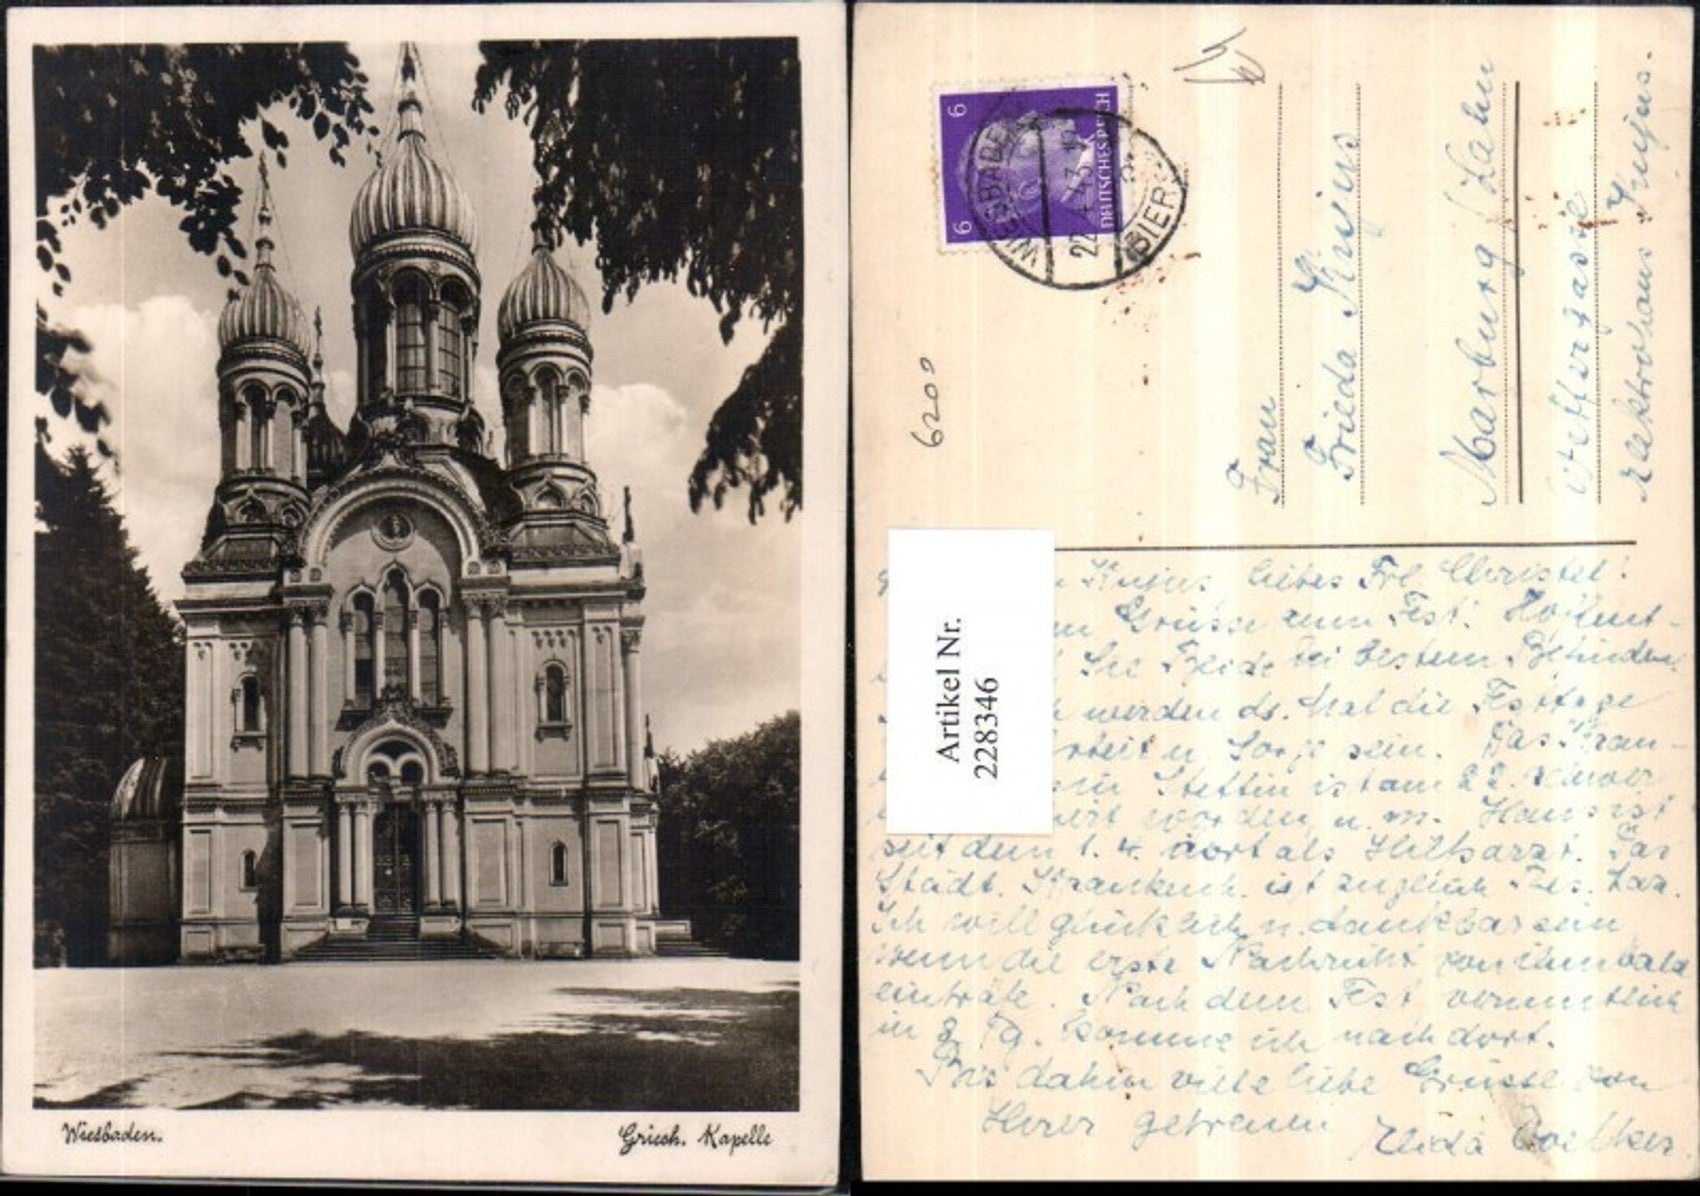 Wiesbaden.
Griech. Kapelle
6 6
DEUTSCHES REICH
WIESBADEN
22.4.43
BIER
6200
Artikel Nr.
228346
Frau
Frieda Kujus
Marburg / Lahn
Wettergasse
Elektrohaus Kujus.
Kujus, liebes Frl. Christel!
Grüsse zum Fest. Hoffent-
Sie Beide bei bestem Befinden
werden ds. Mal die Festtage
u. Sorge sein. Das Kran-
Stettin ist am 22.
worden u. m. Hans ist
seit dem 1. 4. dort als Hilfsarzt. Das
Städt. Krankenh. ist zugleich Res. Laz.
Ich will glücklich u. dankbar sein
wenn die erste Nachricht von ihm bald
einträfe. Nach dem Fest vermutlich
in 8 Tg. komme ich nach dort.
Bis dahin viele liebe Grüsse von
Ihrer getreuen